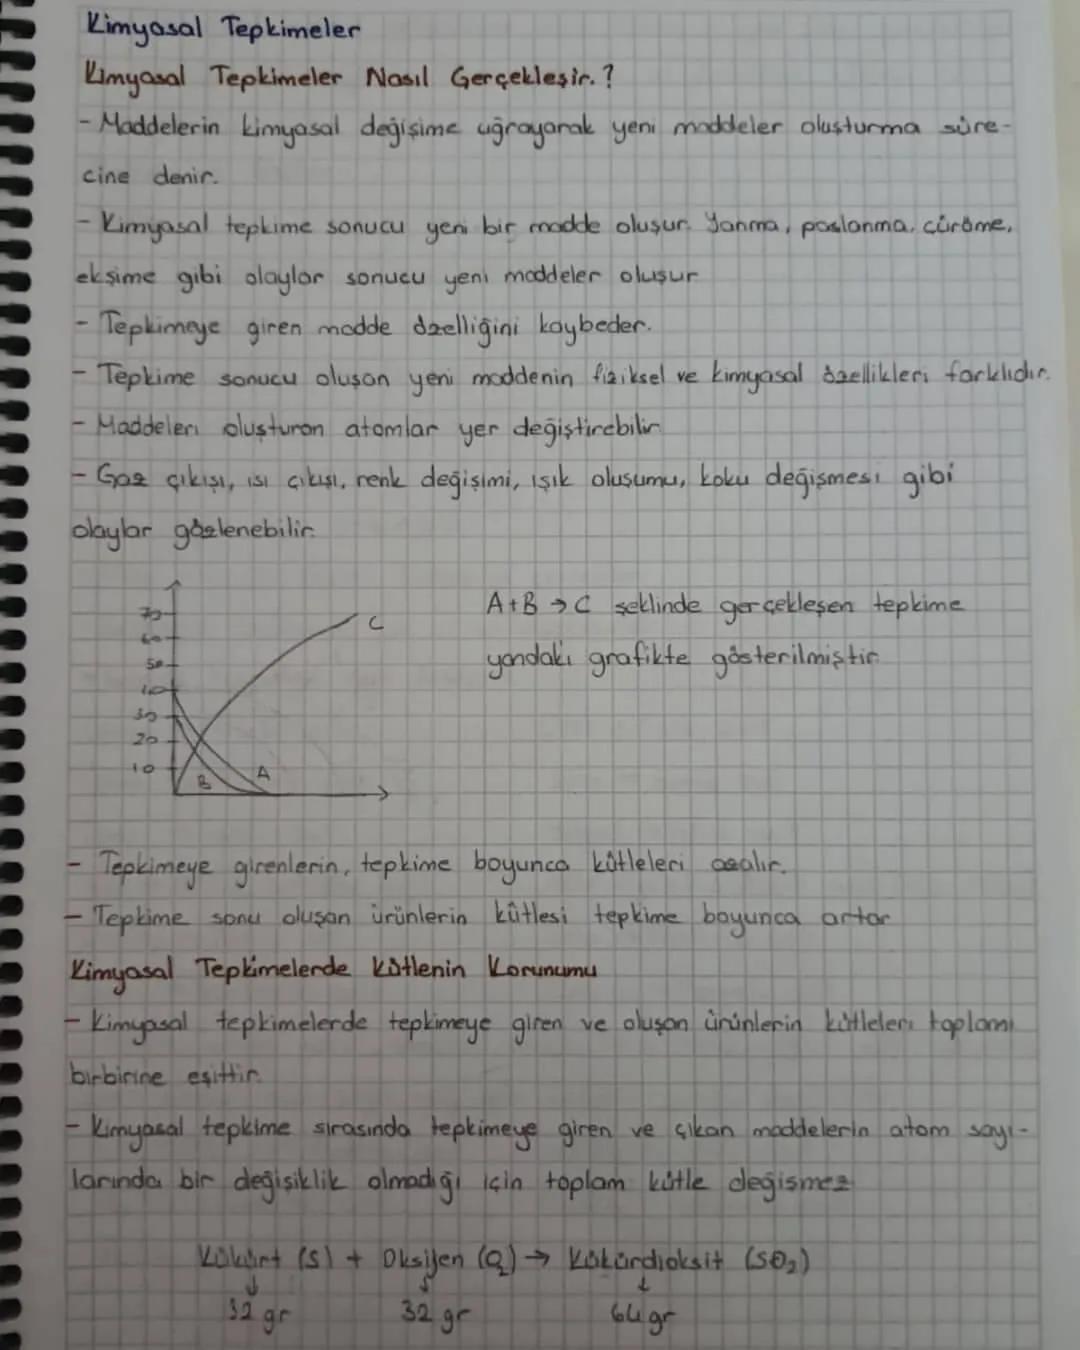 Kimyasal Tepkimeler
Kimyasal Tepkimeler Nasıl Gerçekleşir.?
- Maddelerin kimyasal değişime uğrayarak yeni maddeler oluşturma süre-
cine denir.
- Kimyasal tepkime sonucu yeni bir madde oluşur. Yanma, paslanma, çürüme,
ekşime gibi olaylar sonucu yeni maddeler oluşur
- Tepkimeye giren madde özelliğini kaybeder.
- Tepkime sonucu oluşan yeni maddenin fiziksel ve kimyasal özellikleri farklıdır.
- Maddeleri oluşturan atomlar yer değiştirebilir
- Gaz çıkışı, ısı çıkışı, renk değişimi, ışık oluşumu, koku değişmesi gibi
olaylar gözlenebilir.
70
60
50
40
30
20
10
C
B
A
A+B → C şeklinde gerçekleşen tepkime
yandaki grafikte gösterilmiştir
- Tepkimeye girenlerin, tepkime boyunca kütleleri azalır.
- Tepkime sonu oluşan ürünlerin kütlesi tepkime boyunca artar
Kimyasal Tepkimelerde Kütlenin Korunumu
- Kimyasal tepkimelerde tepkimeye giren ve oluşan ürünlerin kütleleri toplamı
birbirine eşittir.
- Kimyasal tepkime sırasında tepkimeye giren ve çıkan maddelerin atom sayı-
larında bir değişiklik olmadığı için toplam kütle değişmez
Kükürt (S) + Oksijen (O₂) → Kükürdioksit (SO₂)
↓ ↓ ↓
32 gr 32 gr 64 gr